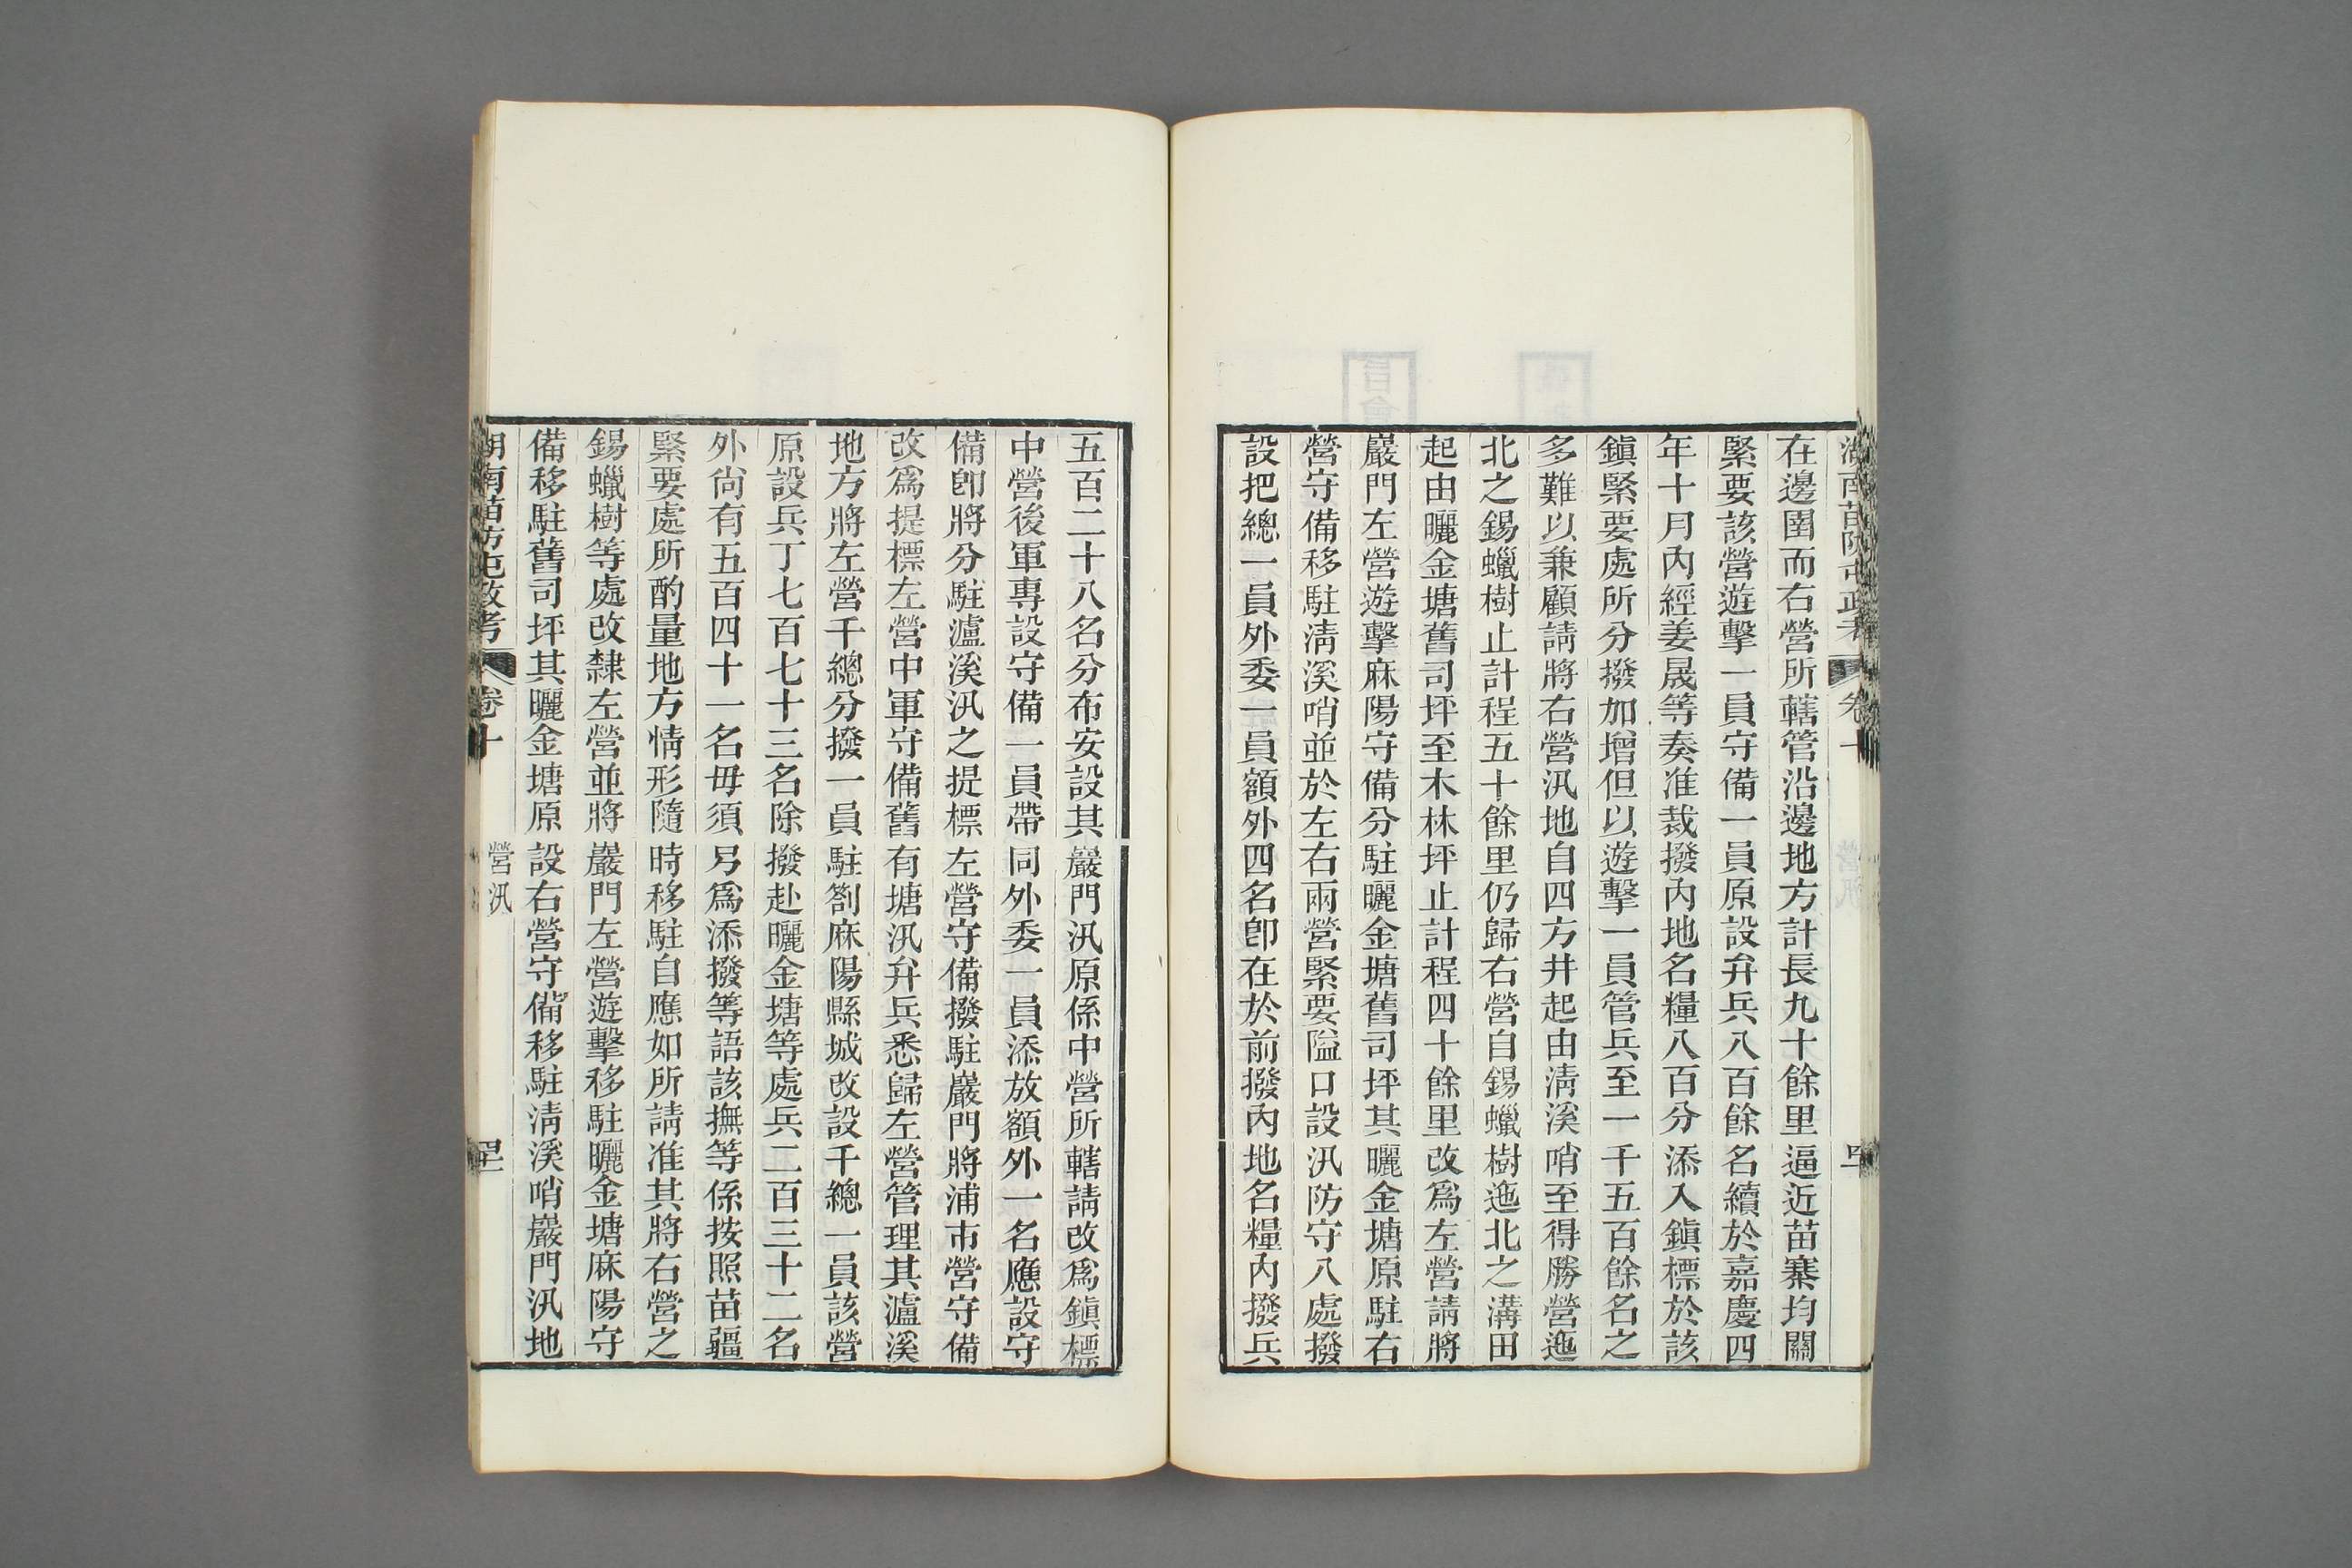 在邊圉而右營所轄管沿邊地方計長九十餘里逼近苗寨均關
緊要該營遊擊一員守備一員原設弁兵八百餘名續於嘉慶四
年十月內經姜晟等奏准裁撥內地名糧八百分添入鎮標於該
鎮緊要處所分撥加增但以遊擊一員管兵至一千五百餘名之
多難以兼顧請將右營汛地自四方井起由清溪哨至得勝營迤
北之錫蠟樹止計程五十餘里仍歸右營自錫蠟樹迤北之溝田
起由曬金塘舊司坪至木林坪止計程四十餘里改爲左營請將
巖門左營遊擊麻陽守備分駐曬金塘舊司坪其曬金塘原駐右
營守備移駐清溪哨並於左右兩營緊要隘口設汛防守八處撥
設把總一員外委一員額外四名卽在於前撥內地名糧內撥兵
五百二十八名分布安設其巖門汛原係中營所轄請改爲鎮標
中營後軍專設守備一員帶同外委一員添放額外一名應設守
備卽將分駐瀘溪汛之提標左營守備撥駐巖門將浦市營守備
改爲提標左營中軍守備舊有塘汛弁兵悉歸左營管理其瀘溪
地方將左營千總分撥一員駐劄麻陽縣城改設千總一員該營
原設兵丁七百七十三名除撥赴曬金塘等處兵二百三十二名
外尙有五百四十一名毋須另爲添撥等語該撫等係按照苗疆
緊要處所酌量地方情形隨時移駐自應如所請准其將右營之
錫蠟樹等處改隸左營並將巖門左營遊擊移駐曬金塘麻陽守
備移駐舊司坪其曬金塘原設右營守備移駐清溪哨巖門汛地
湖南苗防屯政考 卷十 營汛